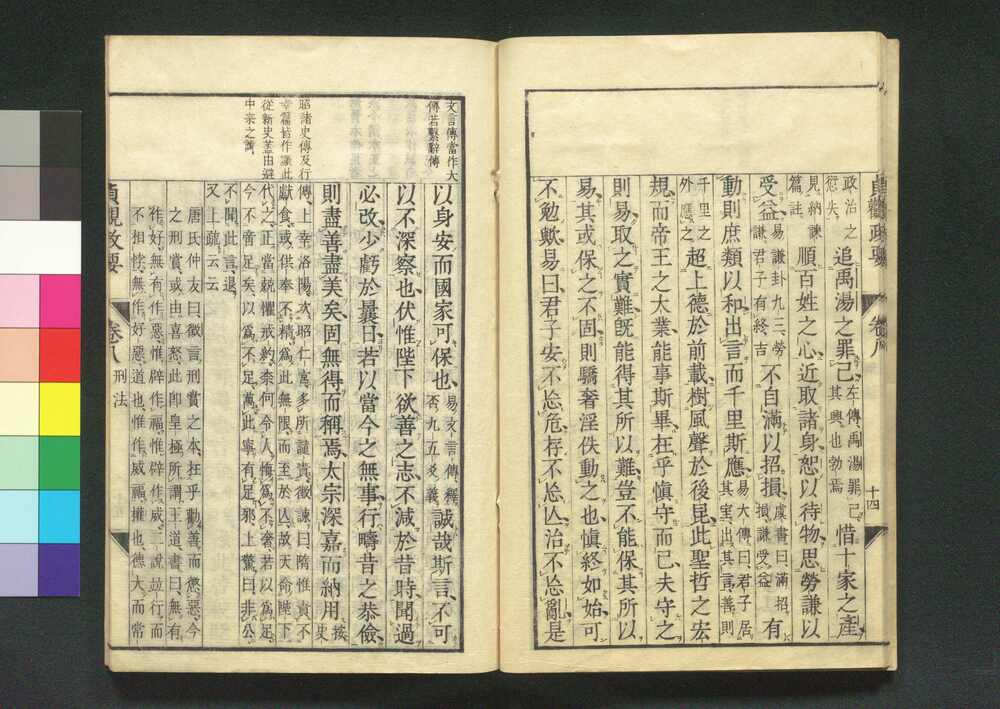 貞觀政要 卷八 十四
政治之
衍失
追禹湯之罪己
左傳禹湯罪己
其興也勃焉
惜十家之產
見納諫
篇註
順百姓之心近取諸身恕以待物思勞謙以
受益
易謙卦九三勞
謙君子有終吉
不自滿以招損
虞書曰滿招
損謙受益
有
動則庶類以和出言而千里斯應
易大傳曰君子居
其室出其言善則
千里之
外應之
超上德於前載樹風聲於後昆此聖哲之宏
規而帝王之大業能事斯畢在乎愼守而已夫守之
則易取之實難旣能得其所以難豈不能保其所以
易其或保之不固則驕奢淫佚動之也愼終如始可
不勉歟易曰君子安不忘危存不忘亾治不忘亂是
文言傳當作大
傳若繫辭傳
以身安而國家可保也
易文言傳釋
否九五爻義
誠哉斯言不可
以不深察也伏惟陛下欲善之志不減於昔時聞過
必改少虧於曩日若以當今之無事行疇昔之恭儉
則盡善盡美矣固無得而稱焉太宗深嘉而納用
按
史
昭諸史傳及行
幸篇皆作顯此
從新史蓋由避
中宗之諱
傳上幸洛陽次昭仁宮多所譴責徵諫曰隋惟責不
獻食或供奉不精爲此無限而至於亾故天命陛下
代之正當兢懼戒約奈何令人悔爲不奢若以爲足
今不啻足矣以爲不足萬此寧有足邪上驚曰非公
不聞此言退
又上疏云云
唐氏仲友曰徵言刑賞之本在乎勸善而懲惡今
之刑賞或由喜怒此卽皇極所謂王道書曰無有
作好無有作惡惟辟作福惟辟作威二說竝行而
不相悖無作好惡道也惟作威福權也德大而常
貞觀政要 卷八 刑法